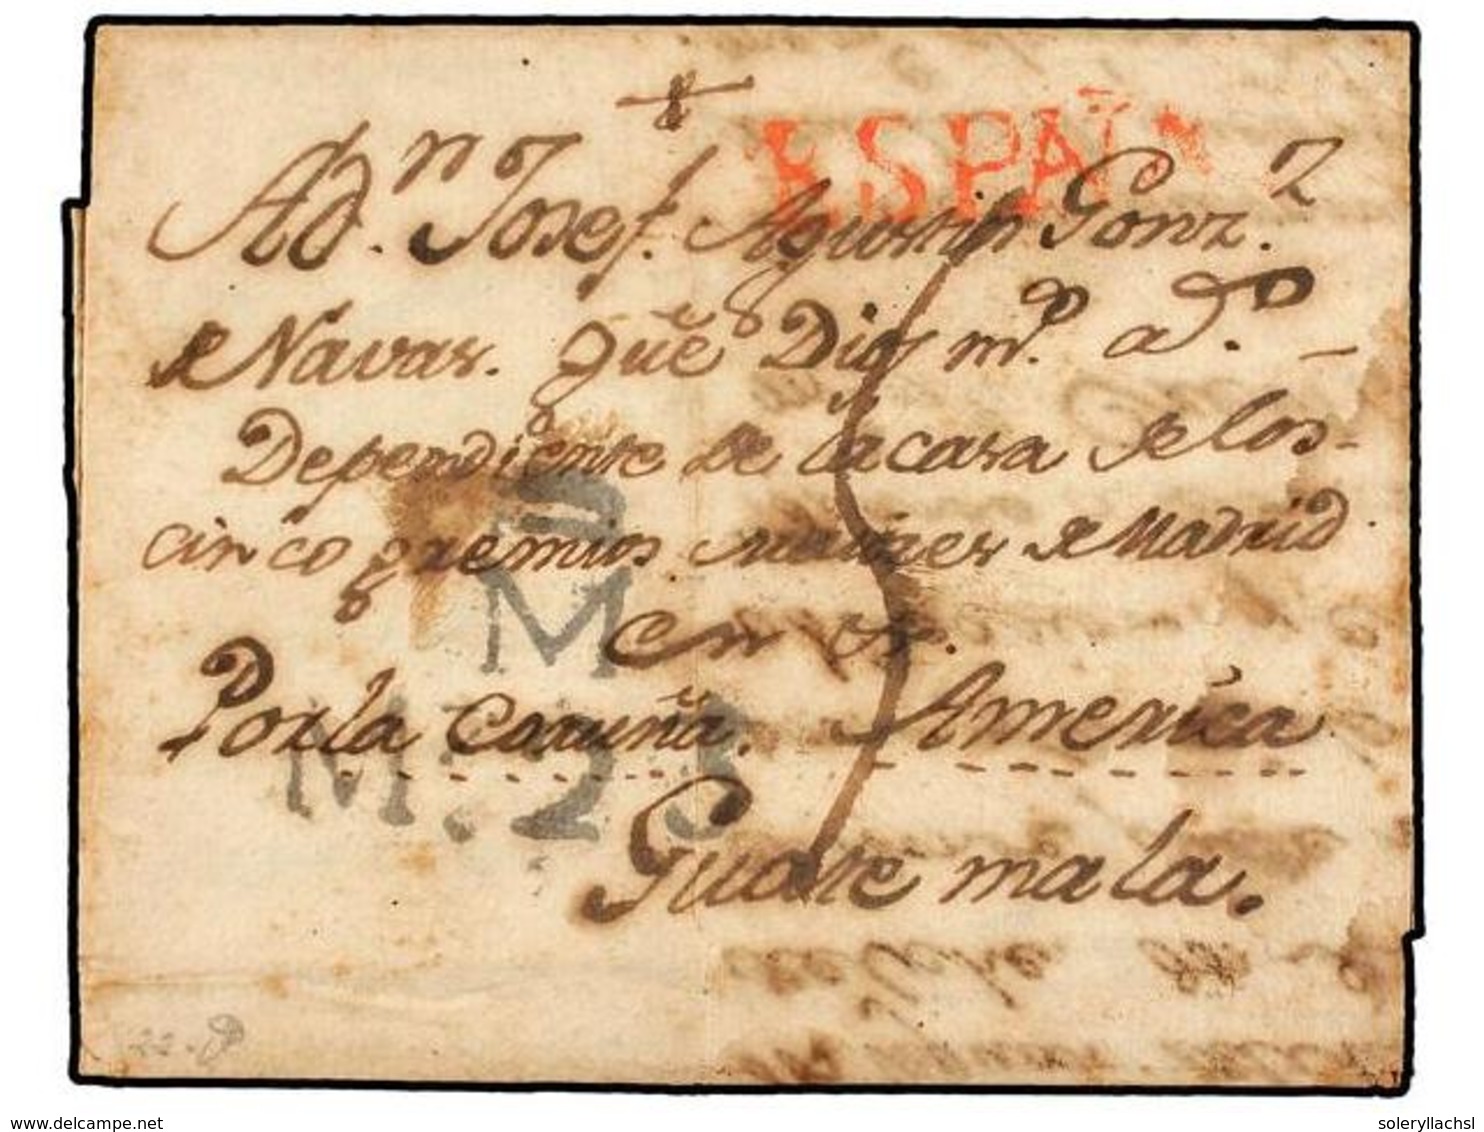 ESPAÑA
A Dn. Josef. Agustin Gonz.z
de Navas. que Dios m.s a.s
Dependiente de la casa de los
cinco gremios maiores de Madrid
en
Por la Coruña. America
M
M. 23
Guatemala.
22.
delcampe.net
soleryllachsl